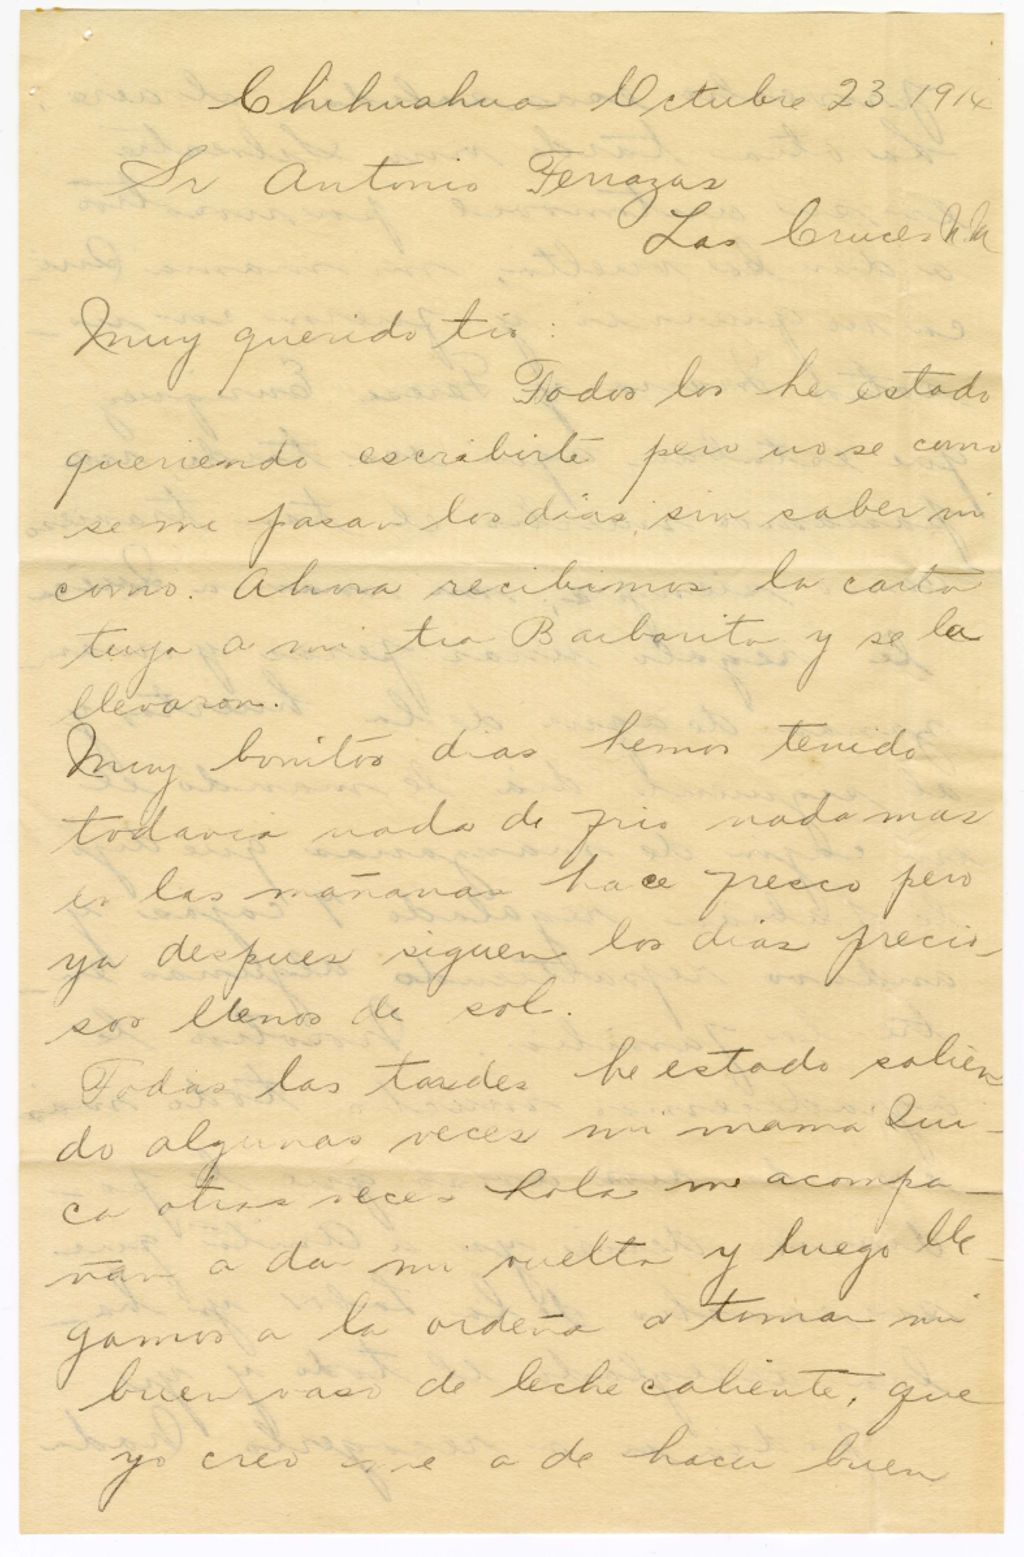 Chihuahua Octubre 23 1914
Sr Antonio Terrazas
Las Cruces N.M
Muy querido tio:
Todos los he estado
queriendo escribirte pero no se como
se me pasan los dias, sin saber ni
como. Ahora recibimos la carta
tuya a mi tia Barbarita y se la
llevaron.
Muy bonitos dias hemos tenido
todavia nada de frio nada mas
en las mañanas hace fresco pero
ya despues siguen los dias precio-
sos llenos de sol.
Todas las tardes he estado salien
do algunas veces mi mamá Qui-
ca otras veces Lola me acompa-
ñan a dar mi vuelta y luego lle-
gamos a la ordeña a tomar mi
buen vaso de leche caliente, que
yo creo que a de hacer buen